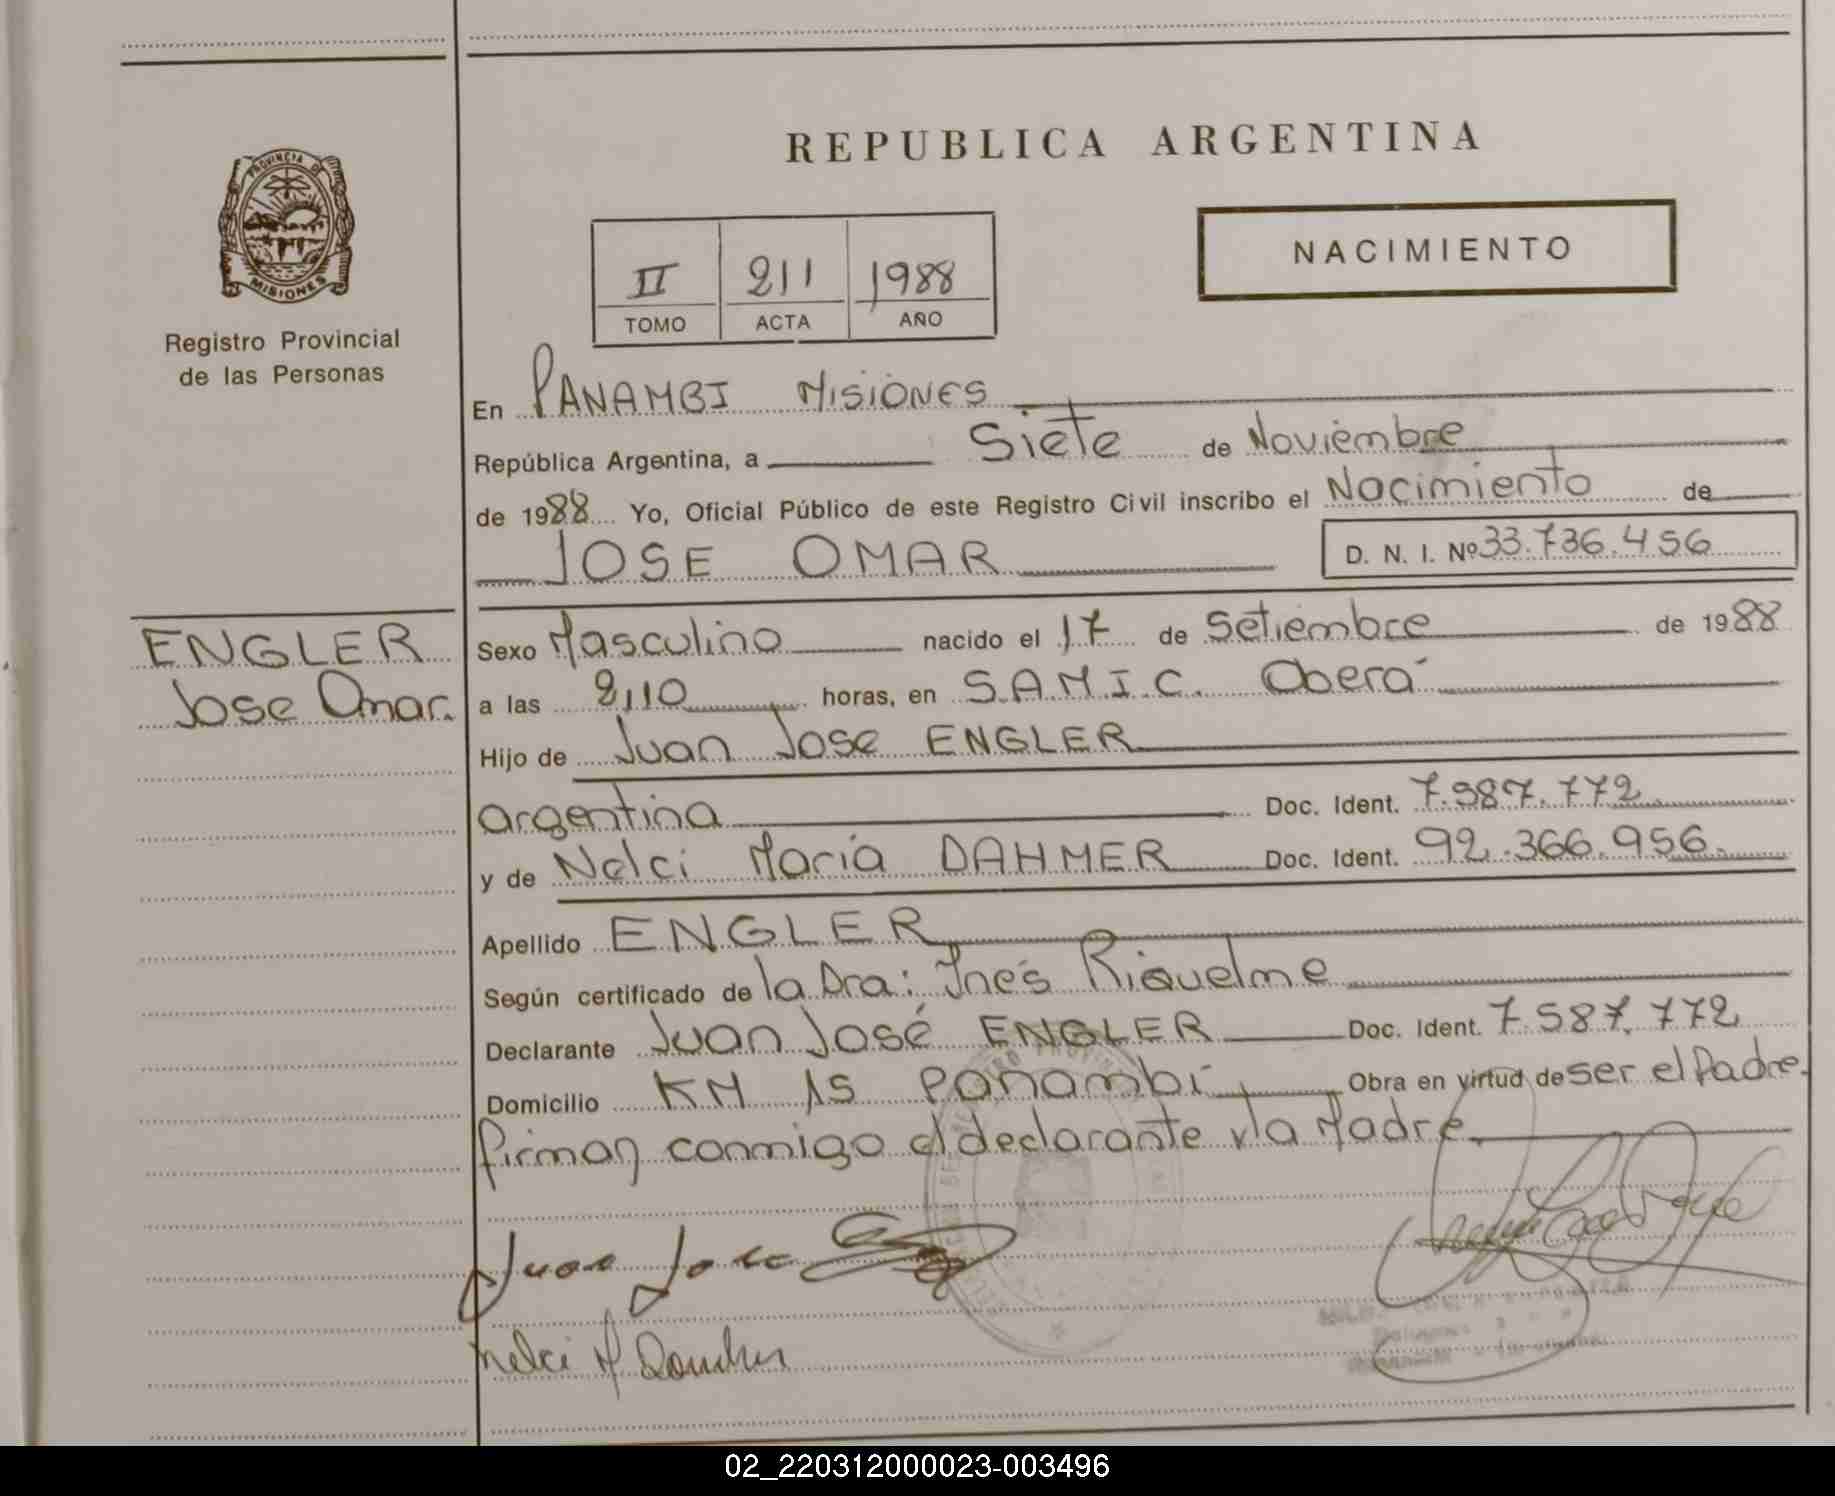 REPUBLICA ARGENTINA
PROVINCIA DE
MISIONES
Registro Provincial
de las Personas
NACIMIENTO
II 211 1988
TOMO ACTA AÑO
En PANAMBI MISIONES
República Argentina, a Siete de Noviembre
de 1988 Yo, Oficial Público de este Registro Civil inscribo el Nacimiento de
JOSE OMAR D. N. I. Nº 33.736.456
ENGLER
Jose Omar.
Sexo Masculino nacido el 17 de Setiembre de 1988
a las 2,10 horas, en S.A.M.I.C. Oberá
Hijo de Juan Jose ENGLER
argentina Doc. Ident. 7.587.772
y de Nelci María DAHMER Doc. Ident. 92.366.956.
Apellido ENGLER
Según certificado de la Dra: Inés Riquelme
Declarante Juan José ENGLER Doc. Ident. 7.587.772
Domicilio KM 15 Panambí Obra en virtud de ser el Padre.
firman conmigo el declarante y la Madre.
Juan Jose
Nelci M
02_220312000023-003496